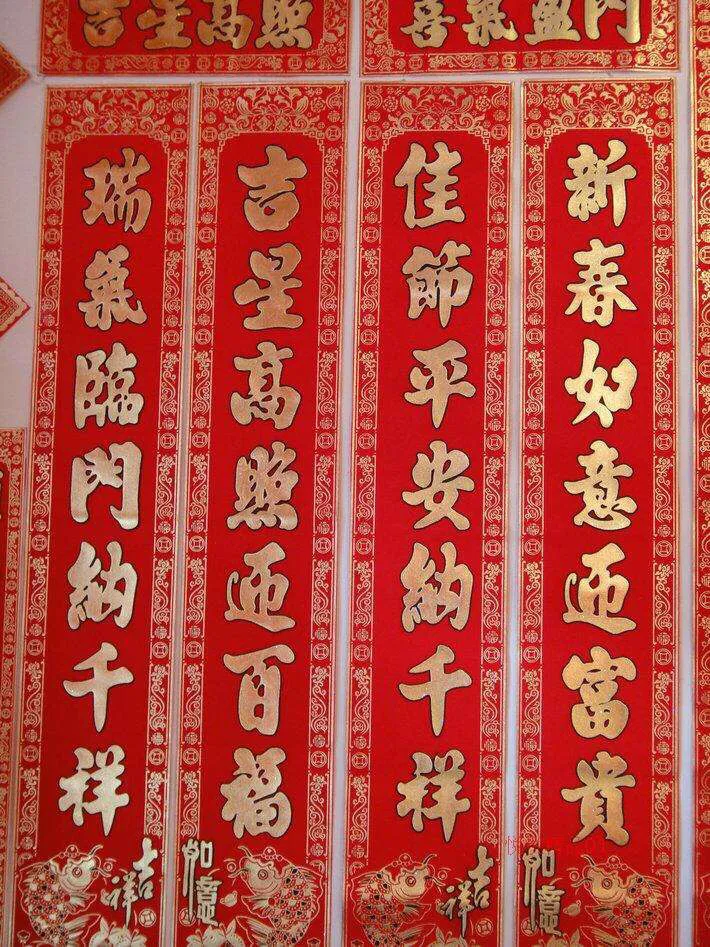 吉星高照
喜氣盈門
新春如意迊富貴
佳節平安納千祥
吉星高照迊百福
瑞氣臨門納千祥
如意
吉祥
如意
吉祥